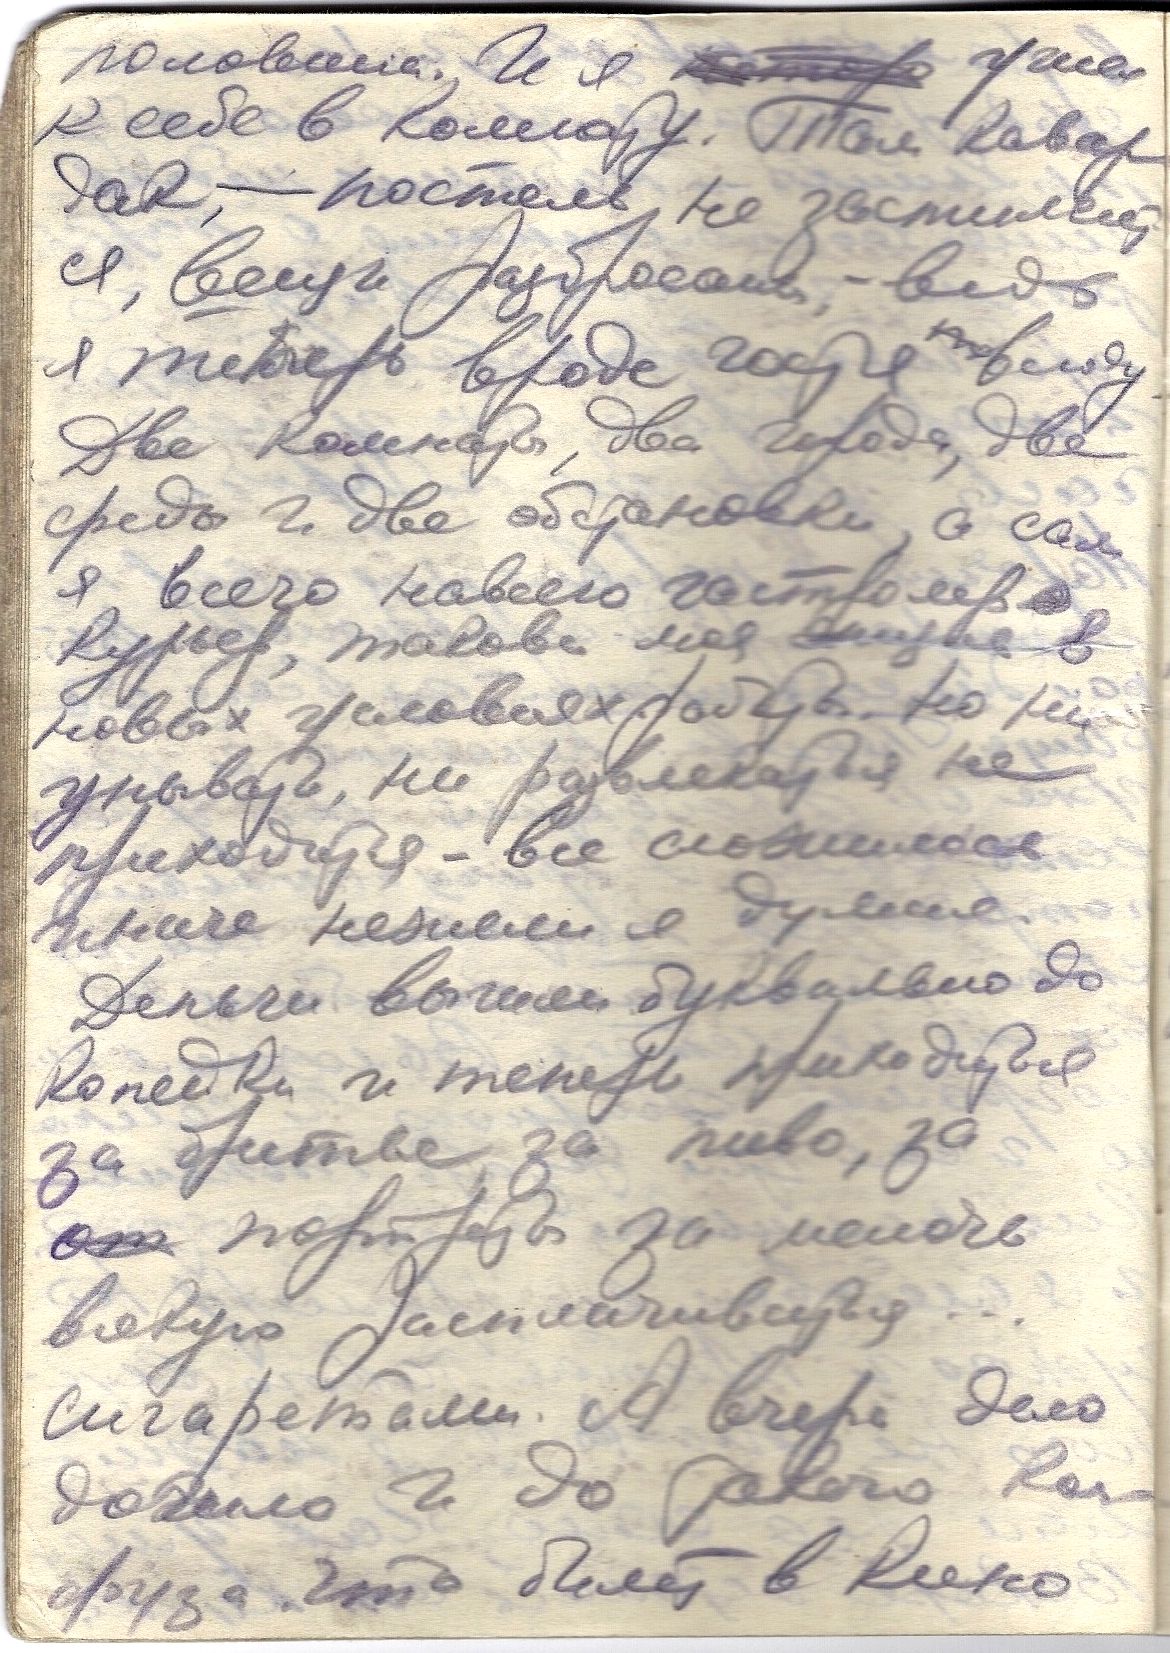 половина. И я ушел
к себе в комнату. Там кавар
дак, — постель не застилает
ся, вещи разбросаны, - ведь
я теперь вроде гостя повсюду
Две комнаты, два города, две
среды и две обстановки, а сам
я всего навсего гастролер
курьер, такова моя в
новых условиях работы. Но ни
унывать, ни развлекаться не
приходится - все сложилось
иначе нежели я думал.
Деньги вышли буквально до
копейки и теперь приходится
за бритье, за пиво, за
портреты за мелочь
всякую расплачиваться ...
сигаретами. А вчера дело
дошло и до такого кон-
фуза что билет в кино